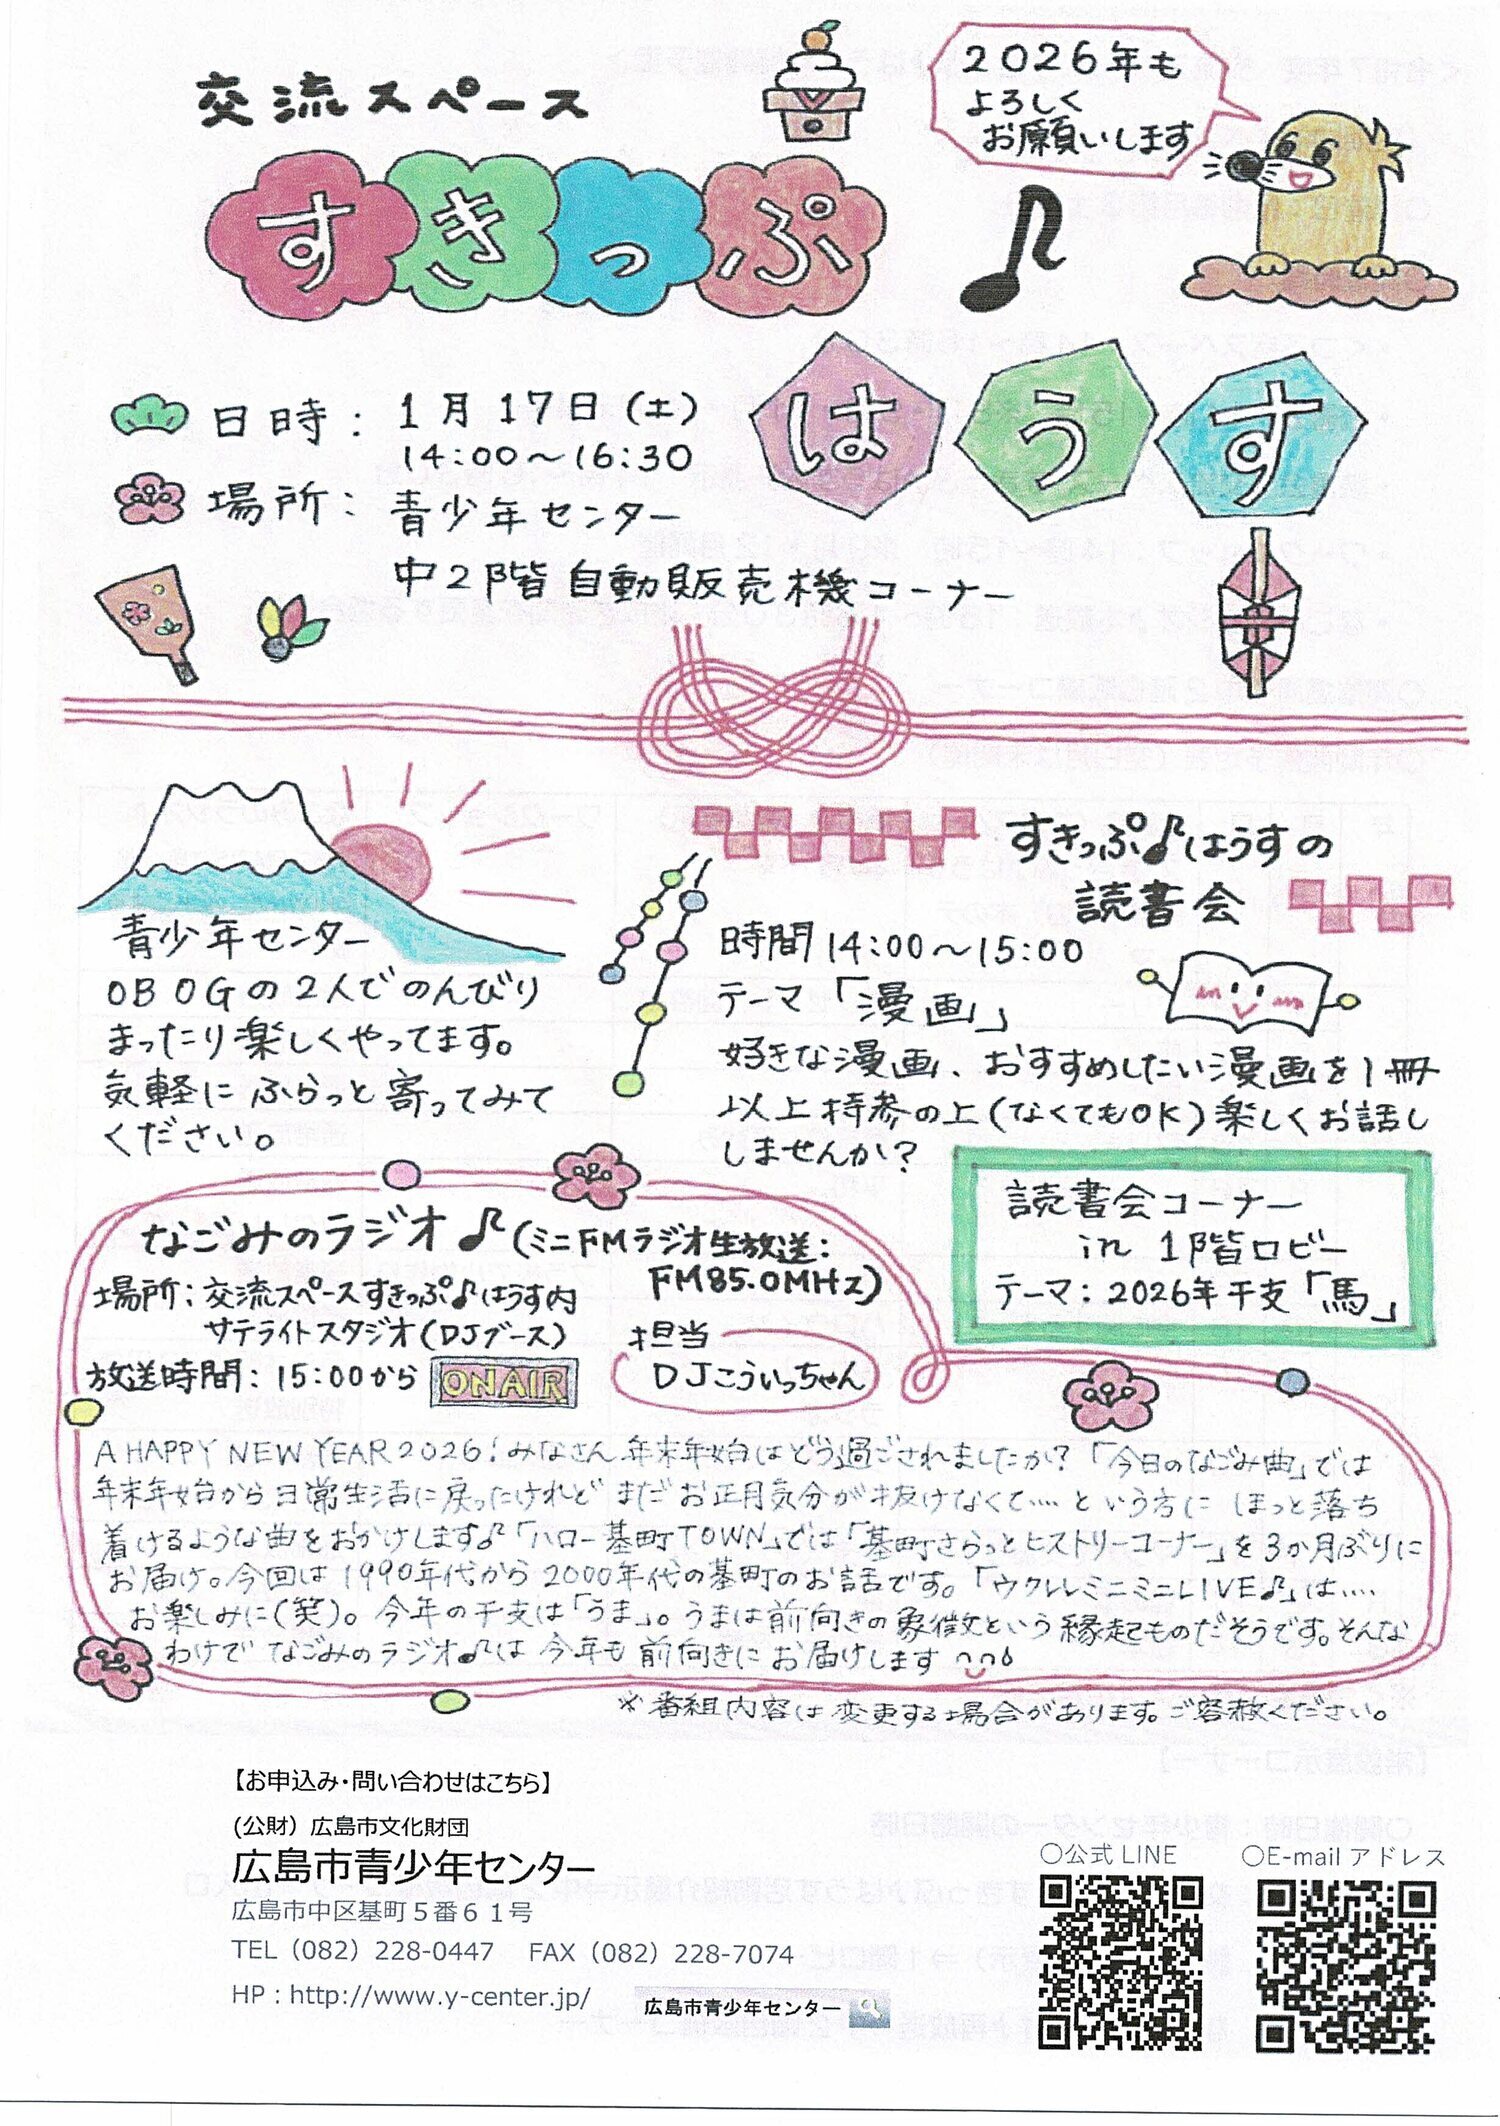 交流スペース
2026年も
よろしく
お願いします
すきっぷ♪
はうす
日時：1月17日（土）
14:00～16:30
場所：青少年センター
中2階自動販売機コーナー
青少年センター
OBOGの2人でのんびり
まったり楽しくやってます。
気軽にふらっと寄ってみて
ください。
すきっぷ♪はうすの
読書会
時間14:00～15:00
テーマ「漫画」
好きな漫画、おすすめしたい漫画を1冊
以上持参の上（なくてもOK）楽しくお話し
しませんか？
読書会コーナー
in 1階ロビー
テーマ：2026年干支「馬」
なごみのラジオ♪（ミニFMラジオ生放送：
FM85.0MHz）
場所：交流スペースすきっぷ♪はうす内
サテライトスタジオ（DJブース）
放送時間：15:00から
ON AIR
担当
DJこういっちゃん
A HAPPY NEW YEAR 2026！みなさん年末年始はどう過ごされましたか？「今日のなごみ曲」では
年末年始から日常生活に戻ったけれどまだお正月気分が抜けなくて‥‥という方にほっと落ち
着けるような曲をおかけします♪「ハロー基町TOWN」では「基町さらっとヒストリーコーナー」を3か月ぶりに
お届け。今回は1990年代から2000年代の基町のお話です。「ウクレレミニミニLIVE♪」は‥‥
お楽しみに（笑）。今年の干支は「うま」。うまは前向きの象徴という縁起ものだそうです。そんな
わけでなごみのラジオ♪は今年も前向きにお届けします
※番組内容は変更する場合があります。ご容赦ください。
【お申込み・問い合わせはこちら】
（公財）広島市文化財団
広島市青少年センター
広島市中区基町５番６１号
TEL（082）228-0447　FAX（082）228-7074
HP：http://www.y-center.jp/
広島市青少年センター
〇公式LINE
〇E-mailアドレス